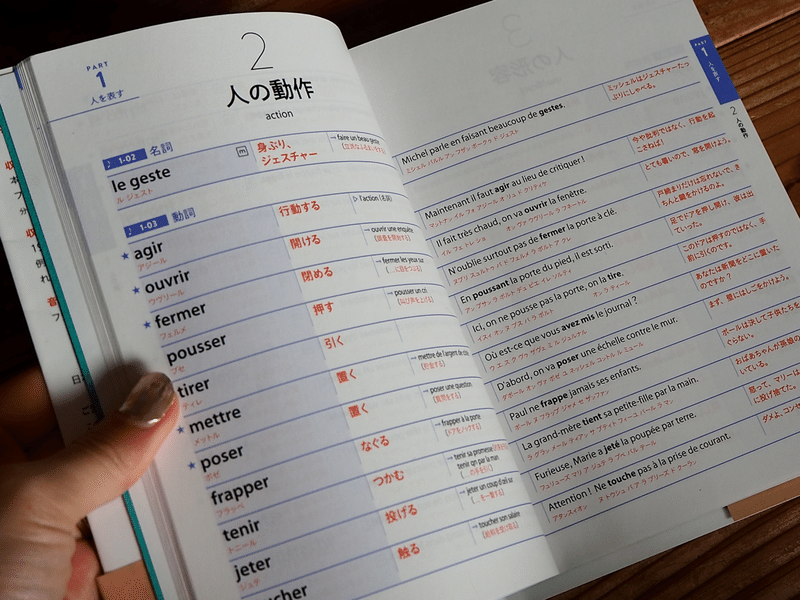 PART
1
人を表す
2
人の動作
action
1-02 名詞
le geste
ル ジェスト
m
身ぶり、
ジェスチャー
→ faire un beau geste
1-03 動詞
★ agir
アジール
行動する
▷ l'action (名詞)
★ ouvrir
ウヴリール
開ける
→ ouvrir une enquête
(調査を開始する)
★ fermer
フェルメ
閉める
→ fermer les yeux sur
(…に目をつぶる)
pousser
プセ
押す
→ pousser un cri
(叫び声を上げる)
tirer
ティレ
引く
★ mettre
メットル
置く
→ mettre de l'argent de côté
(貯金する)
★ poser
ポゼ
置く
→ poser une question
(質問をする)
frapper
フラッペ
なぐる
→ frapper à la porte
(ドアをノックする)
tenir
トニール
つかむ
→ tenir sa promesse
tenir qn par la main
(…の手を引く)
jeter
ジュテ
投げる
→ jeter un coup d'œil sur
(…を一瞥する)
toucher
触る
→ toucher son salaire
(給料を受け取る)
Michel parle en faisant beaucoup de gestes.
ミシェル パルル アン フザン ボークゥ ド ジェスト
ミッシェルはジェスチャーたっ
ぷりにしゃべる。
Maintenant il faut agir au lieu de critiquer !
マントナン イル フォ アジール オ リュ ド クリティケ
今や批判ではなく、行動を起
こさねば!
Il fait très chaud, on va ouvrir la fenêtre.
イル フェ トレ ショ オン ヴァ ウヴリール ラ フネートル
とても暑いので、窓を開けよう。
N'oublie surtout pas de fermer la porte à clé.
ヌブリ スュルトゥ パ ド フェルメ ラ ポルト ア クレ
戸締まりだけは忘れないで、き
ちんと鍵をかけるのよ。
En poussant la porte du pied, il est sorti.
アン プッサン ラ ポルト デュ ピエ イレ ソルティ
足でドアを押し開け、彼は出
ていった。
Ici, on ne pousse pas la porte, on la tire.
イスィ オン ヌ プス パ ラ ポルト オン ラ ティール
このドアは押すのではなく、手
前に引くのです。
Où est-ce que vous avez mis le journal ?
ウ エス ク ヴゥ ザヴェ ミ ル ジュルナル
あなたは新聞をどこに置いた
のですか?
D'abord, on va poser une échelle contre le mur.
ダボール オン ヴァ ポゼ ユ ネシェル コントル ル ミュール
まず、壁にはしごをかけよう。
Paul ne frappe jamais ses enfants.
ポール ヌ フラップ ジャメ セ ザンファン
ポールは決して子供たちを
ぐらない。
La grand-mère tient sa petite-fille par la main.
ラ グランメール ティアン サ プティト フィーユ パール ラ マン
おばあちゃんが孫娘の
いている。
Furieuse, Marie a jeté la poupée par terre.
フュリューズ マリ ア ジュテ ラ プペ パル テール
怒って、マリーは
に投げ捨てた。
Attention ! Ne touche pas à la prise de courant.
アタンスィオン ヌ トゥシュ パ ア ラ プリーズ ド クーラン
ダメよ、コンセ
PART
1
人を表す
2
人の動作